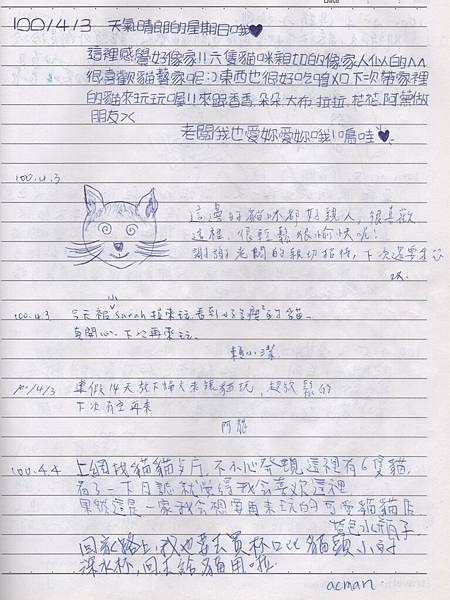 100/4/3 天氣晴朗的星期日哦♥
這裡感覺好像家!!六隻貓咪親切的像家人似的^^
很喜歡貓藝家呢:)東西也很好吃唷XD下次帶家裡
的貓來玩玩喔!!來跟香香.朵朵.大布.拉拉.花花.阿無做
朋友XX
老闆我也愛妳愛妳哦!!嗚哇♥
100.4.3
這邊的貓咪都好親人,很喜歡
這裡,很輕鬆很愉快呢!
謝謝老闆的親切招待,下次還要來
100.4.3 今天被Sarah拉來玩.看到好多 的貓~
真開心~下次再來玩~
賴小
100/4/3 連假 天 下 來 貓玩,超放鬆的
下次有空再來
阿龍
100.4.4 上網找貓貓 片,不小心發現這裡有6隻貓;
看了一下月誌就覺得我會喜歡這裡
果然這是一家我会想要再来玩的可愛貓貓店
藍色小瓶子
回家路上,我也要去買杯口比貓頭小的
深水杯,回去給貓用啦.
acman.